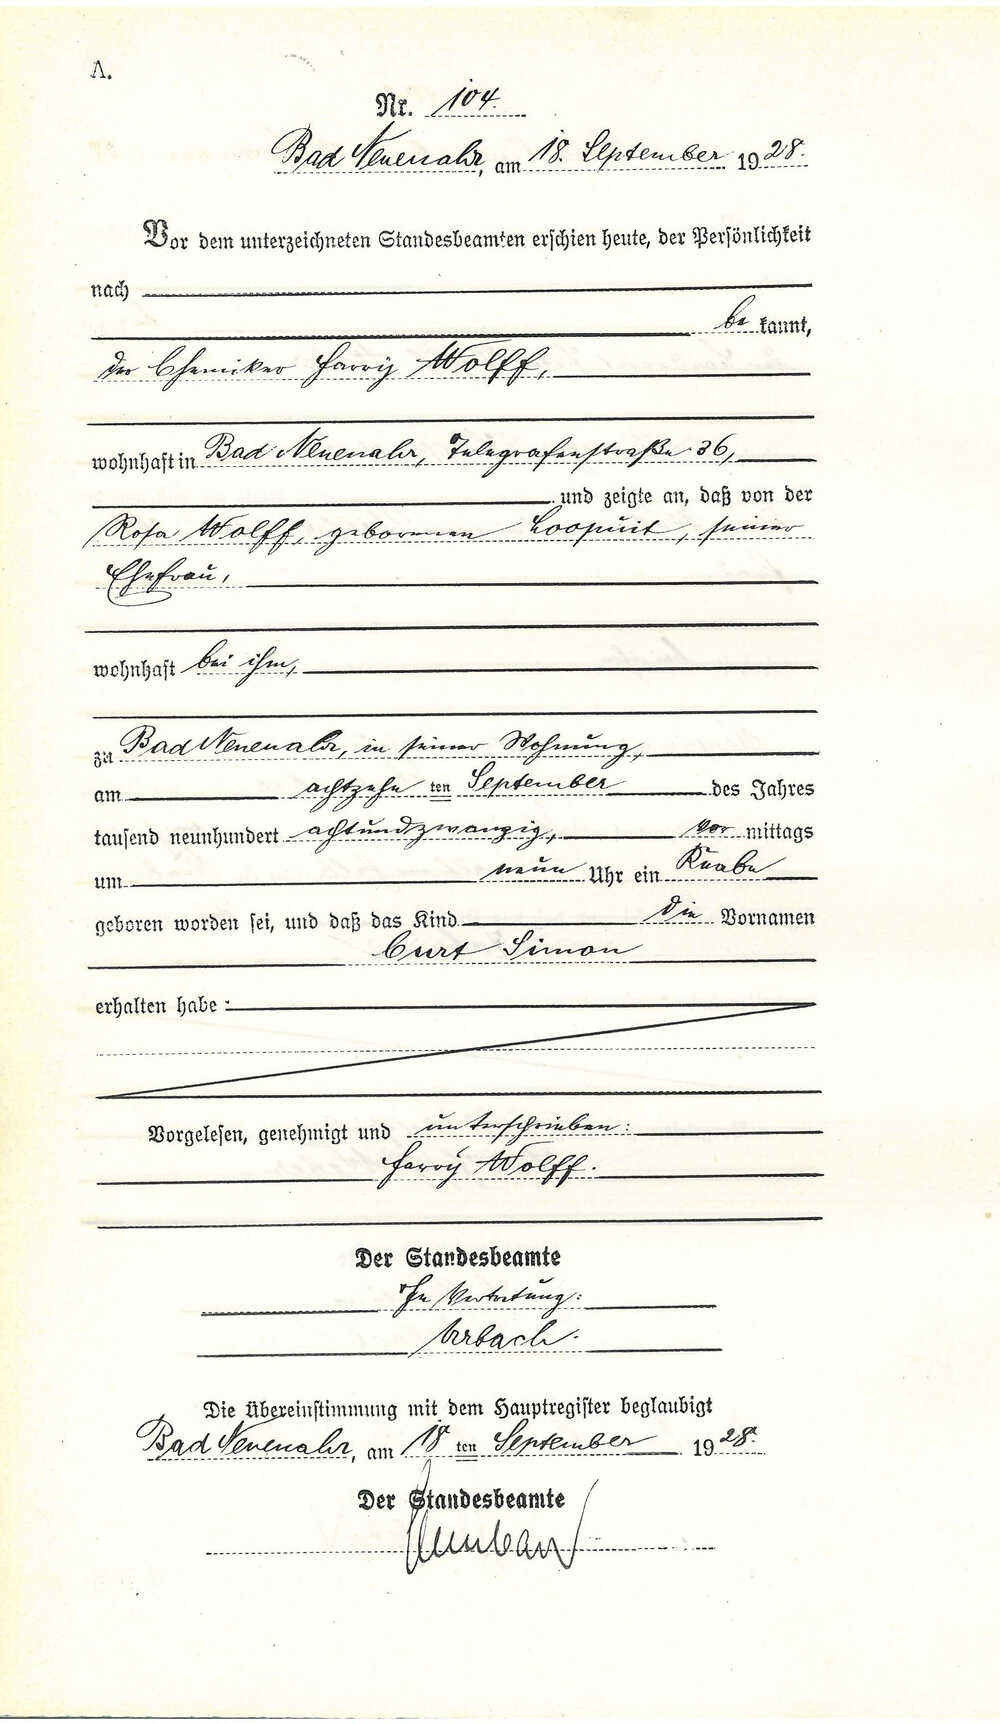 A.
Nr. 104.
Bad Neuenahr, am 18. September 1928.
Vor dem unterzeichneten Standesbeamten erschien heute, der Persönlichkeit
nach
be kannt,
der Chemiker Harry Wolff,
wohnhaft in Bad Neuenahr, Telegrafenstraße 36,
und zeigte an, daß von der
Rosa Wolff, geborenen Loopuit, seiner
Ehefrau,
wohnhaft bei ihm,
zu Bad Neuenahr, in seiner Wohnung,
am achtzehn ten September des Jahres
tausend neunhundert achtundzwanzig, vor mittags
um neun Uhr ein Knabe
geboren worden sei, und daß das Kind die Vornamen
Curt Simon
erhalten habe:
Vorgelesen, genehmigt und unterschrieben:
Harry Wolff.
Der Standesbeamte
In Vertretung:
Urbach.
Die Übereinstimmung mit dem Hauptregister beglaubigt
Bad Neuenahr, am 18 ten September 1928.
Der Standesbeamte